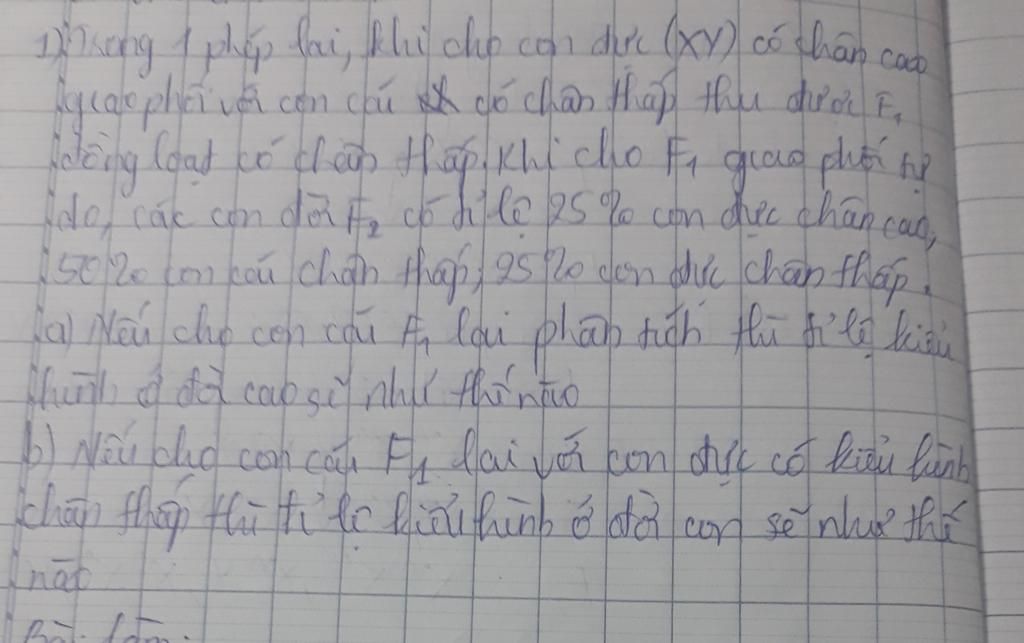 1) Trong 1 phép lai, khi cho con đực (XY) có chân cao
giao phối với con cái có chân thấp thu được F1
đồng loạt có chân thấp. Khi cho F1 giao phối tự
do, các con đời F2 có tỉ lệ 25% con đực chân cao,
50% con cái chân thấp, 25% con đực chân thấp.
a) Nếu cho con cái F1 lai phân tích thì tỉ lệ kiểu
hình ở đời con sẽ như thế nào
b) Nếu cho con cái F1 lai với con đực có kiểu hình
chân thấp thì tỉ lệ kiểu hình ở đời con sẽ như thế
nào
Bài làm: